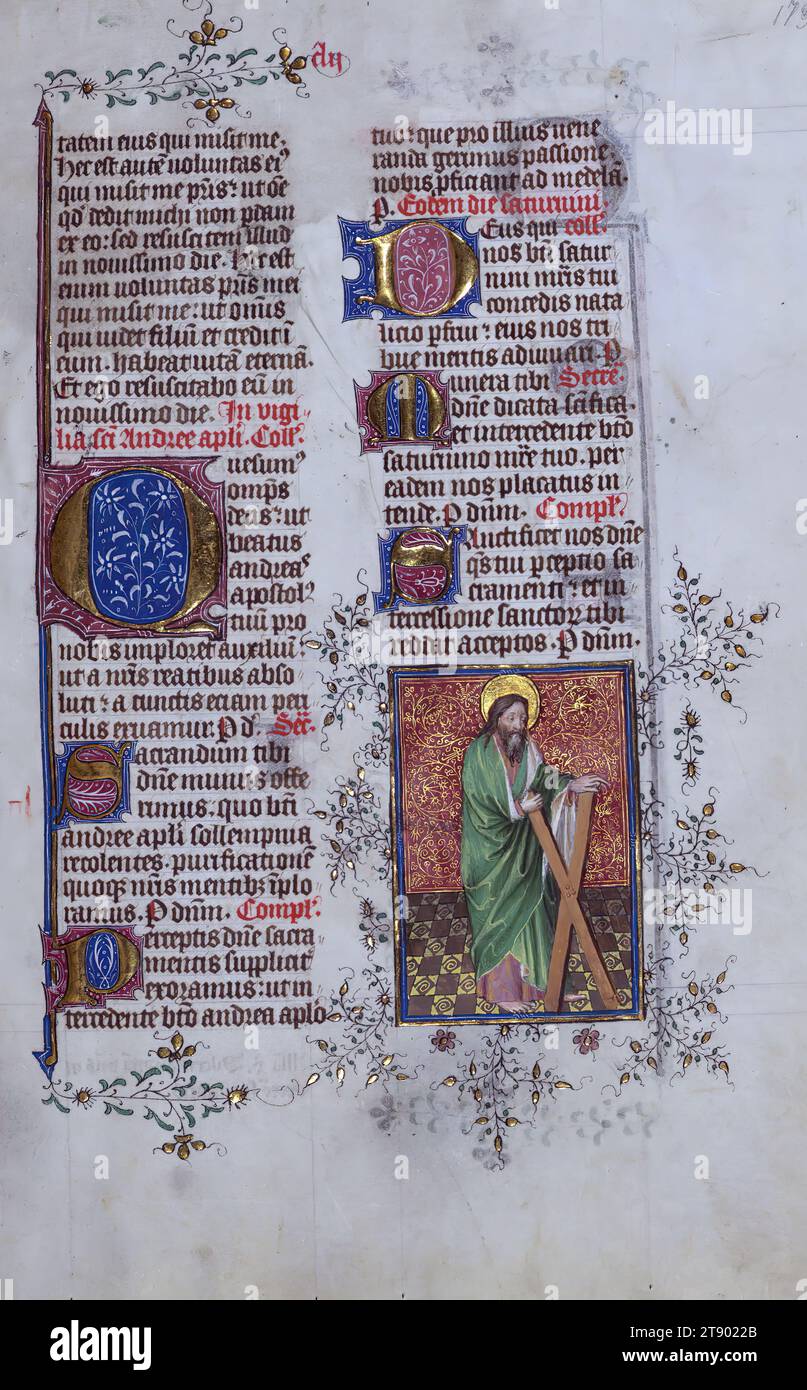 clii
173
tatem eius qui misit me.
Hec est autē voluntas ei⁹
qui misit me pr̄is: ut oē
qd̓ dedit michi non ꝑdam
ex eo: sed resuscitem illud
in novissimo die. Hec est
enim voluntas pr̄is mei
qui misit me: ut omnis
qui videt filium et credit ī
eum. habeat vitā eternā.
Et ego resuscitabo eū in
novissimo die. In vigi
lia sc̄i Andree apl̄i. Coll̓.
Quesum⁹
omp̄s
deus: ut
beatus
andreas
apostol⁹
tuū pro
nobis imploret auxiliū:
ut a nr̄is reatibus abso
luti: a cunctis eciam peri
culis eruamur. P d̓. Secr̓.
Sacrandum tibi
dn̄e munus offe
rimus. quo bt̄i
andree apl̄i sollempnia
recolentes. purificationē
quoqꝫ nr̄is mentibꝫ īplo
ramus. P dn̄m. Compl̓.
Perceptis dn̄e sacra
mentis supplicit̓
exoramus: ut in
tercedente bt̄o andrea aplō
tuo: que pro illius vene
randa gerimus passione
nobis ꝓficiant ad medelā.
P. Eodem die saturnini
Deus qui coll̓.
nos bt̄i satur
nini mr̄is tui
concedis nata
licio ꝑfrui: eius nos tri
bue mentis adiuvari. P
Munera tibi Secre̓.
dn̄e dicata sc̄ifica.
et intercedente bt̄o
saturnino mr̄e tuo. per
eadem nos placatus in
tende. P dn̄m. Compl̓.
Sanctificet nos dn̄e
qs̄ tui perceptio sa
cramenti: et in
tercessione sanctoꝝ tibi
reddat acceptos. P dn̄m.
alamy
Image ID: 2T9022B
www.alamy.com